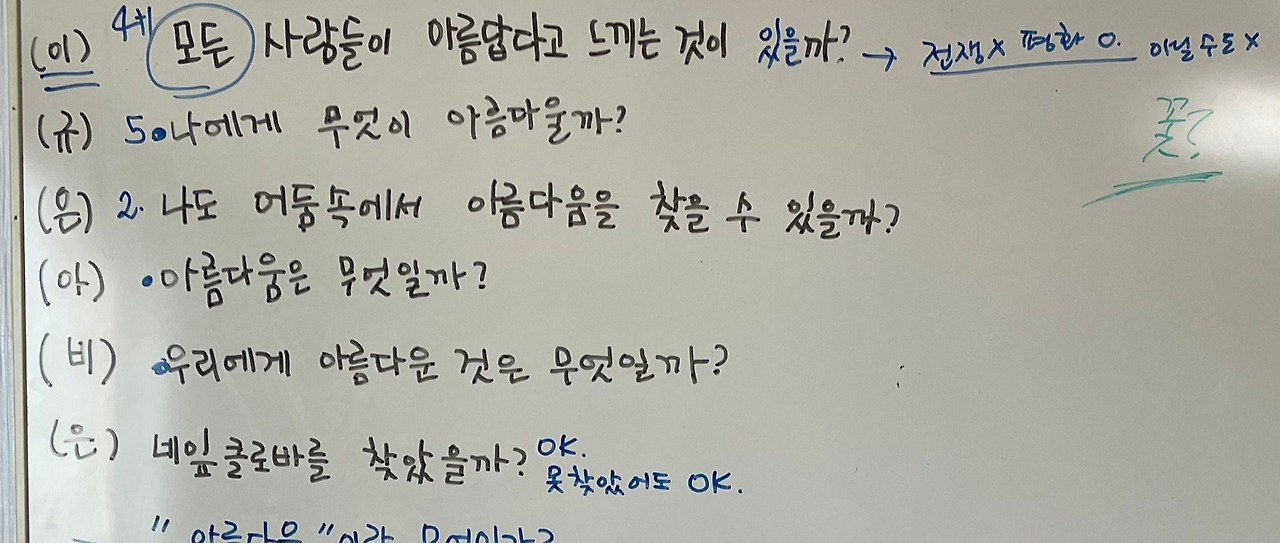 (이) 4차 모든 사람들이 아름답다고 느끼는 것이 있을까? → 전쟁× 평화 O. 아닐 수도 ×
(규) 5.나에게 무엇이 아름다울까?
꽃?
(음) 2. 나도 어둠속에서 아름다움을 찾을 수 있을까?
(아) •아름다움은 무엇일까?
(비) •우리에게 아름다운 것은 무엇일까?
(은) 네잎클로바를 찾았을까? OK.
못찾았어도 OK.
"아름다움"이란 무엇인가?